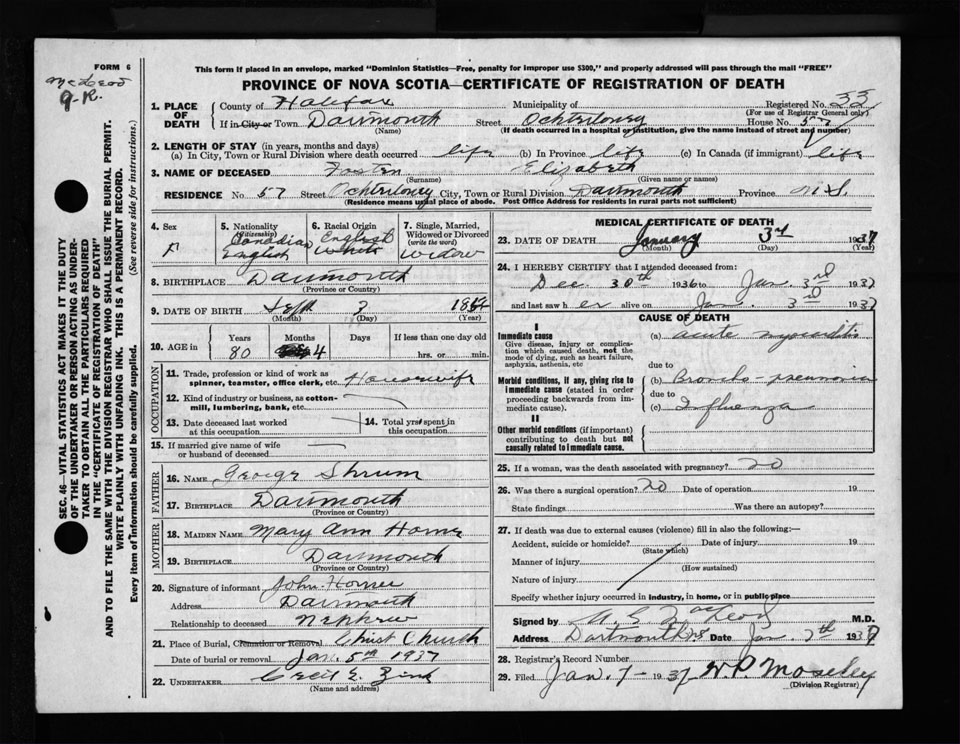 FORM 6
McLeod
G.R.
SEC. 46—VITAL STATISTICS ACT MAKES IT THE DUTY
OF THE UNDERTAKER OR PERSON ACTING AS UNDER-
TAKER TO OBTAIN ALL THE PARTICULARS REQUIRED
IN THE "CERTIFICATE OF REGISTRATION OF DEATH"
AND TO FILE THE SAME WITH THE DIVISION REGISTRAR WHO SHALL ISSUE THE BURIAL PERMIT.
WRITE PLAINLY WITH UNFADING INK. THIS IS A PERMANENT RECORD.
Every item of information should be carefully supplied. (See reverse side for instructions.)
This form if placed in an envelope, marked "Dominion Statistics—Free, penalty for improper use $300," and properly addressed will pass through the mail "FREE"
PROVINCE OF NOVA SCOTIA—CERTIFICATE OF REGISTRATION OF DEATH
1. PLACE OF DEATH County of Halifax Municipality of Registered No. 33
(For use of Registrar General only)
If in City or Town Dartmouth Street Ochterloney House No. 57
(Name) (If death occurred in a hospital or institution, give the name instead of street and number)
2. LENGTH OF STAY (in years, months and days)
(a) In City, Town or Rural Division where death occurred life (b) In Province life (c) In Canada (if immigrant) life
3. NAME OF DECEASED Foster Elizabeth
(Surname) (Given name or names)
RESIDENCE No. 57 Street Ochterloney City, Town or Rural Division Dartmouth Province N.S.
(Residence means usual place of abode. Post Office Address for residents in rural parts not sufficient)
4. Sex F
5. Nationality (Citizenship) Canadian English
6. Racial Origin English White
7. Single, Married, Widowed or Divorced (write the word) Widow
8. BIRTHPLACE Dartmouth
(Province or Country)
9. DATE OF BIRTH Sept 3
(Month) (Day) (Year)
10. AGE in Years 80 Months 4 Days If less than one day old hrs. or min.
OCCUPATION
11. Trade, profession or kind of work as spinner, teamster, office clerk, etc. Housewife
12. Kind of industry or business, as cotton-mill, lumbering, bank, etc.
13. Date deceased last worked at this occupation
14. Total yrs spent in this occupation
15. If married give name of wife or husband of deceased
FATHER
16. NAME George Shrum
17. BIRTHPLACE Dartmouth
(Province or Country)
MOTHER
18. MAIDEN NAME Mary Ann Horne
19. BIRTHPLACE Dartmouth
(Province or Country)
20. Signature of informant John Horne
Address Dartmouth
Relationship to deceased Nephew
21. Place of Burial, Cremation or Removal Christ Church
Date of burial or removal Jan. 5th 1937
22. UNDERTAKER Cecil E. Zink
(Name and address)
MEDICAL CERTIFICATE OF DEATH
23. DATE OF DEATH January 3rd 1937
(Month) (Day) (Year)
24. I HEREBY CERTIFY that I attended deceased from:
Dec. 30th 1936 to Jan. 3rd 1937
and last saw her alive on Jan. 3rd 1937
CAUSE OF DEATH
I
Immediate cause
Give disease, injury or complication which caused death, not the mode of dying, such as heart failure, asphyxia, asthenia, etc
(a) Acute myocarditis
due to
Morbid conditions, if any, giving rise to immediate cause (stated in order proceeding backwards from immediate cause).
(b) Broncho-pneumonia
due to
(c) Influenza
II
Other morbid conditions (if important) contributing to death but not causally related to immediate cause.
25. If a woman, was the death associated with pregnancy? no
26. Was there a surgical operation? no Date of operation 19
State findings Was there an autopsy?
27. If death was due to external causes (violence) fill in also the following:—
Accident, suicide or homicide? Date of injury 19
(State which)
Manner of injury
(How sustained)
Nature of injury
Specify whether injury occurred in industry, in home, or in public place
Signed by MacLeod M.D.
Address Dartmouth N.S. Date Jan. 7th 1937
28. Registrar's Record Number
29. Filed Jan. 7 - 1937 W.P. Moseley
(Division Registrar)